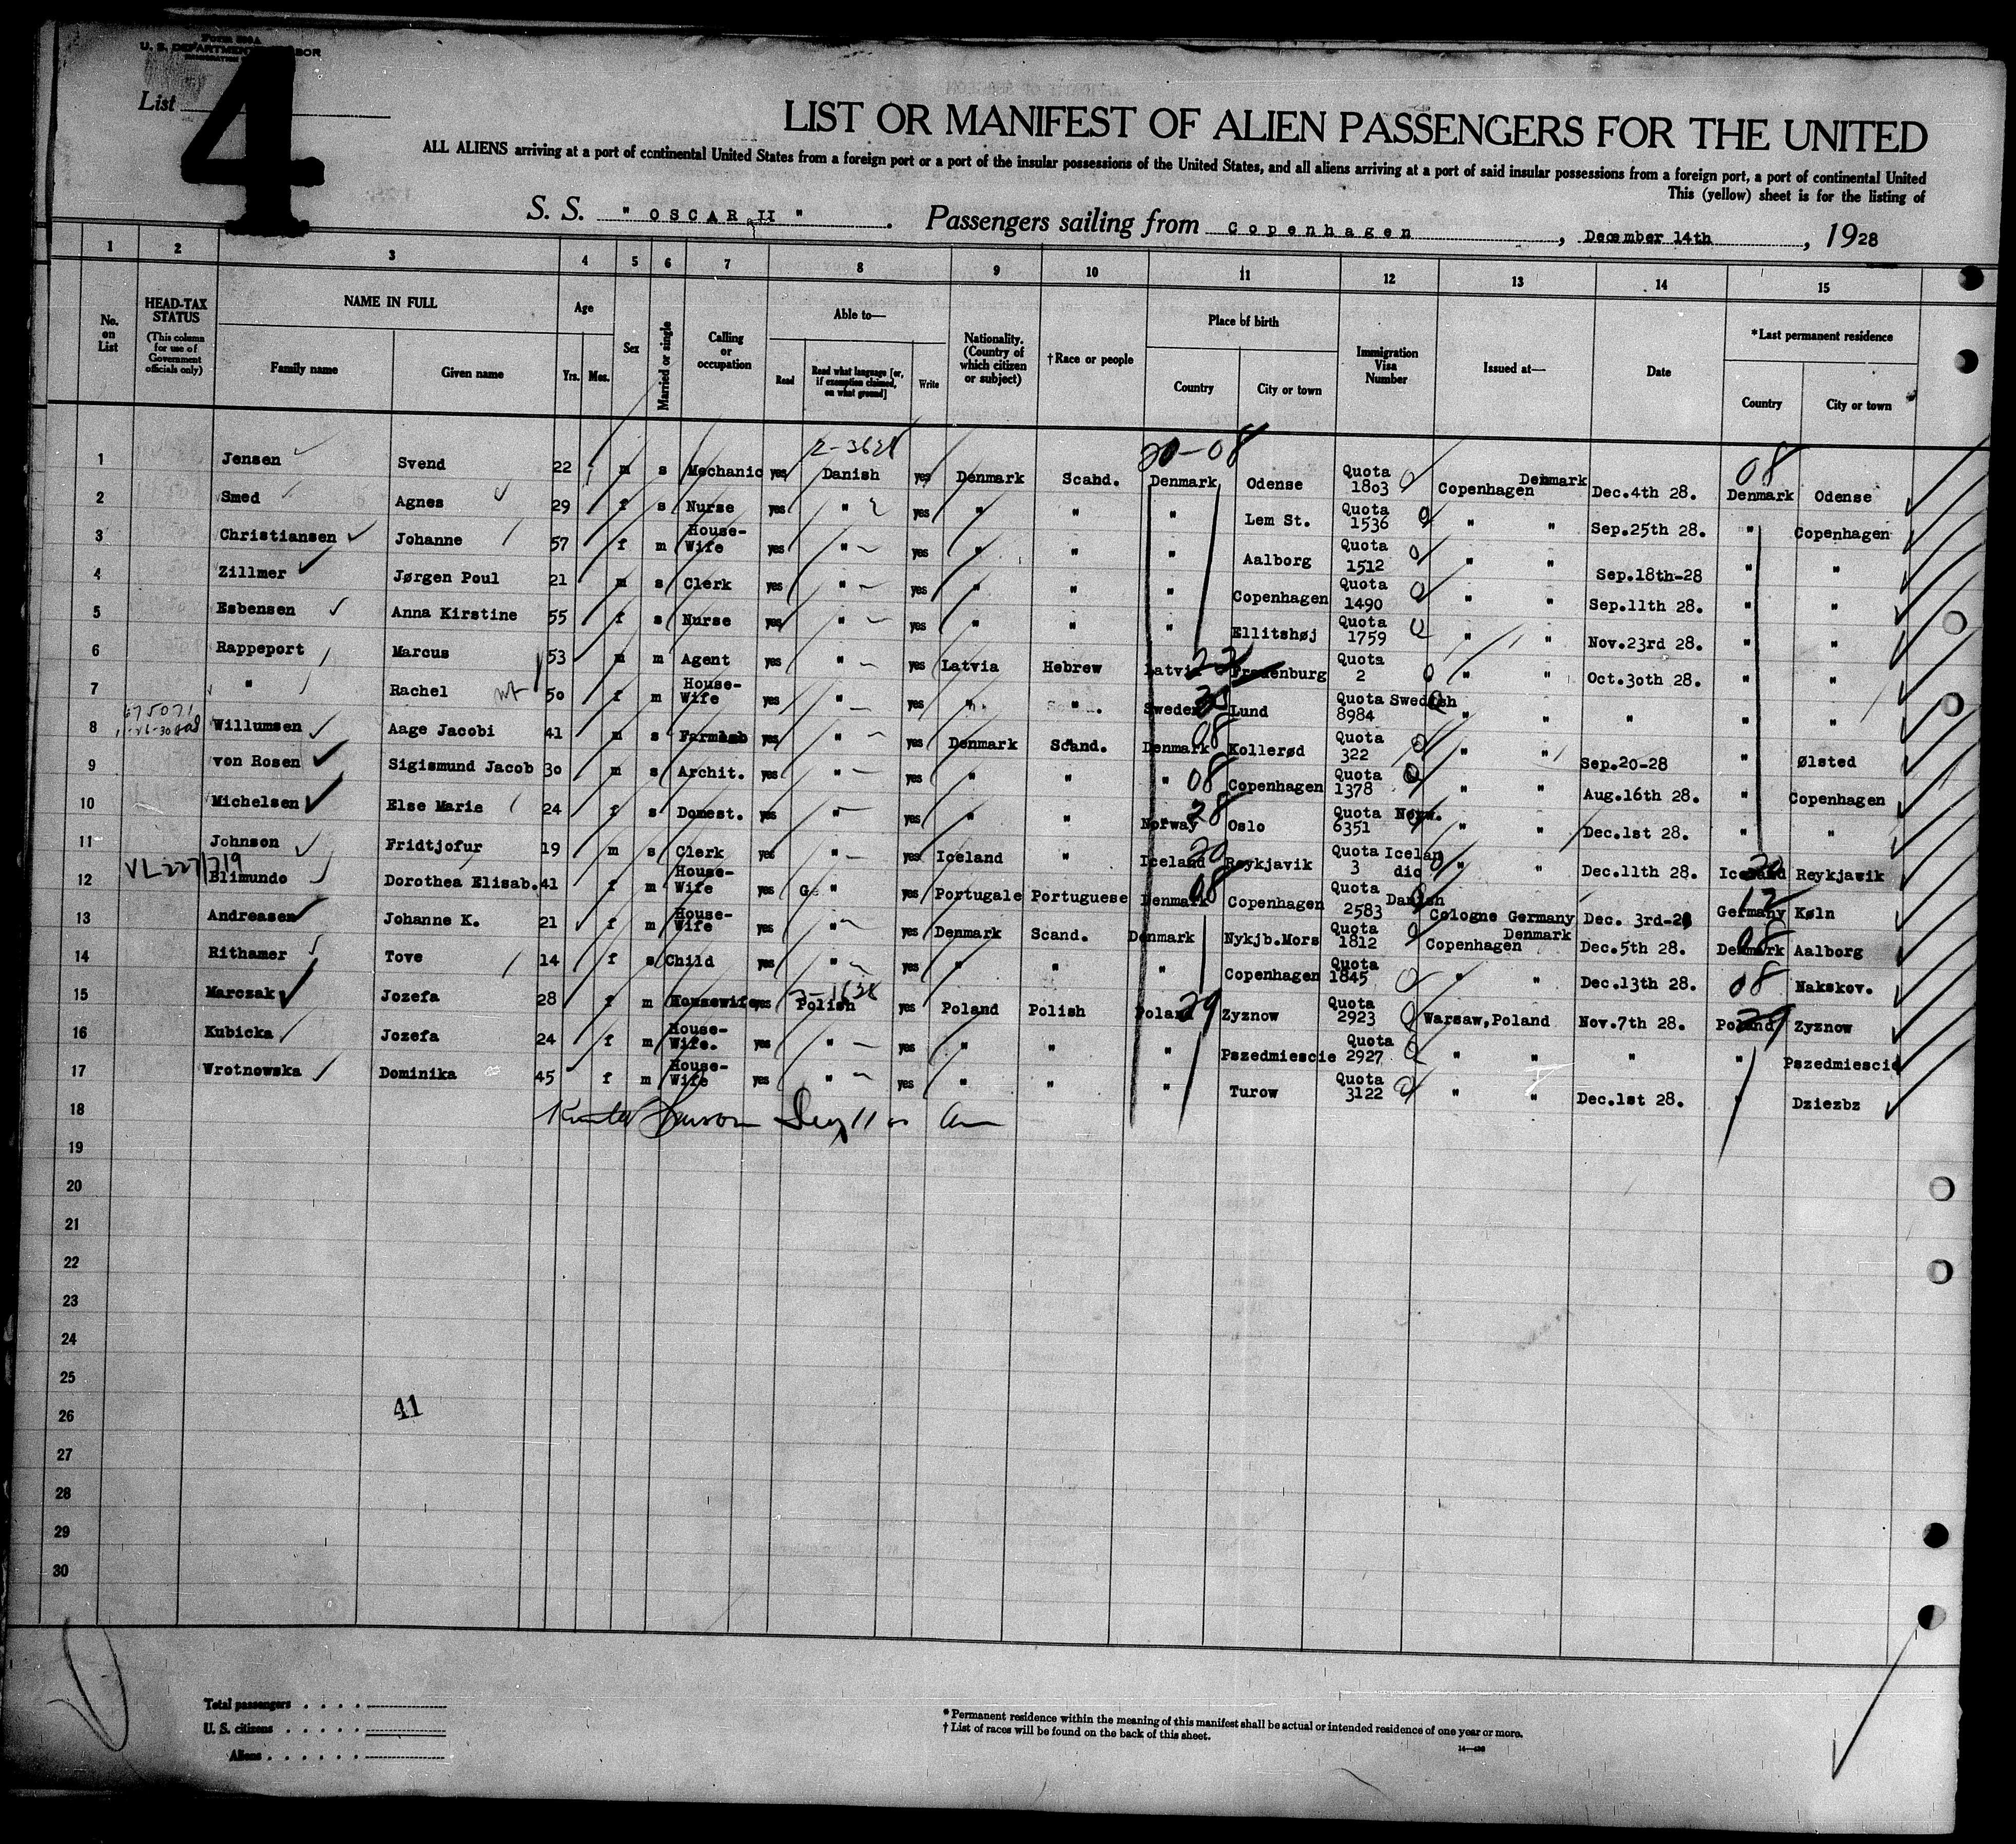 Form 500A
U. S. DEPARTMENT LABOR
List 4
LIST OR MANIFEST OF ALIEN PASSENGERS FOR THE UNITED
ALL ALIENS arriving at a port of continental United States from a foreign port or a port of the insular possessions of the United States, and all aliens arriving at a port of said insular possessions from a foreign port, a port of continental United
This (yellow) sheet is for the listing of
S. S. " OSCAR II ". Passengers sailing from Copenhagen, December 14th, 1928
1 2 3 4 5 6 7 8 9 10 11 12 13 14 15
No. on List
HEAD-TAX STATUS (This column for use of Government officials only)
NAME IN FULL Family name Given name
Age Yrs. Mos.
Sex
Married or single
Calling or occupation
Able to— Read Read what language [or, if exemption claimed, on what ground] Write
Nationality. (Country of which citizen or subject)
†Race or people
Place of birth Country City or town
Immigration Visa Number
Issued at—
Date
*Last permanent residence Country City or town
2-3628 20-08 08
1 Jensen Svend 22 m s Mechanic yes Danish yes Denmark Scand. Denmark Odense Quota 1803 Copenhagen Denmark Dec.4th 28. Denmark Odense
2 Smed Agnes 29 f s Nurse yes " yes " " " Lem St. Quota 1536 " " Sep.25th 28. " Copenhagen
3 Christiansen Johanne 57 f m House-Wife yes " yes " " " Aalborg Quota 1512 " " Sep.18th-28 " "
4 Zillmer Jørgen Poul 21 m s Clerk yes " yes " " " Copenhagen Quota 1490 " " Sep.11th 28. " "
5 Esbensen Anna Kirstine 55 f s Nurse yes " yes " " " Ellitshøj Quota 1759 " " Nov.23rd 28. " "
6 Rappeport Marcus 53 m m Agent yes " yes Latvia Hebrew Latvia Frauenburg Quota 2 " " Oct.30th 28. " "
7 " Rachel 50 f m House-Wife yes " yes " " Sweden Lund Quota Swedish 8984 " " " " "
8 Willumsen Aage Jacobi 41 m s yes " yes Denmark Scand. Denmark 08 Kollerød Quota 322 " " Sep.20-28 Ølsted
9 von Rosen Sigismund Jacob 30 m s Archit. yes " yes " " " 08 Copenhagen Quota 1378 " " Aug.16th 28. " Copenhagen
10 Michelsen Else Marie 24 f s Domest. yes " yes " " Norway 28 Oslo Quota Norw. 6351 " " Dec.1st 28. " "
11 Johnson Fridtjofur 19 m s Clerk yes " yes Iceland " Iceland Reykjavik Quota Icelandic 3 " " Dec.11th 28. Iceland Reykjawik
12 Elimundo Dorothea Elisab. 41 f m House-Wife yes " yes Portugale Portuguese Denmark 08 Copenhagen Quota Danish 2583 Cologne Germany Dec. 3rd-28 Germany 12 Køln
13 Andreasen Johanne K. 21 f m House-Wife yes " yes Denmark Scand. Denmark Nykjb.Mors Quota 1812 Copenhagen Denmark Dec.5th 28. Denmark 08 Aalborg
14 Rithamer Tove 14 f s Child yes " yes " " " Copenhagen Quota 1845 " " Dec.13th 28. 08 Nakskov.
15 Marczak Jozefa 28 f m Housewife yes Polish yes Poland Polish Poland 29 Zyznow Quota 2923 Warsaw, Poland Nov.7th 28. Poland 29 Zyznow
16 Kubicka Jozefa 24 f m House-Wife. yes " yes " " " Pszedmiescie Quota 2927 " " " " Pszedmiescie
17 Wrotnowska Dominika 45 f m House-Wife yes " yes " " " Turow Quota 3122 " " Dec.1st 28. " Dziezbz
18
19
20
21
22
23
24
25
26
41
27
28
29
30
Total passengers
U. S. citizens
Aliens
* Permanent residence within the meaning of this manifest shall be actual or intended residence of one year or more.
† List of races will be found on the back of this sheet.